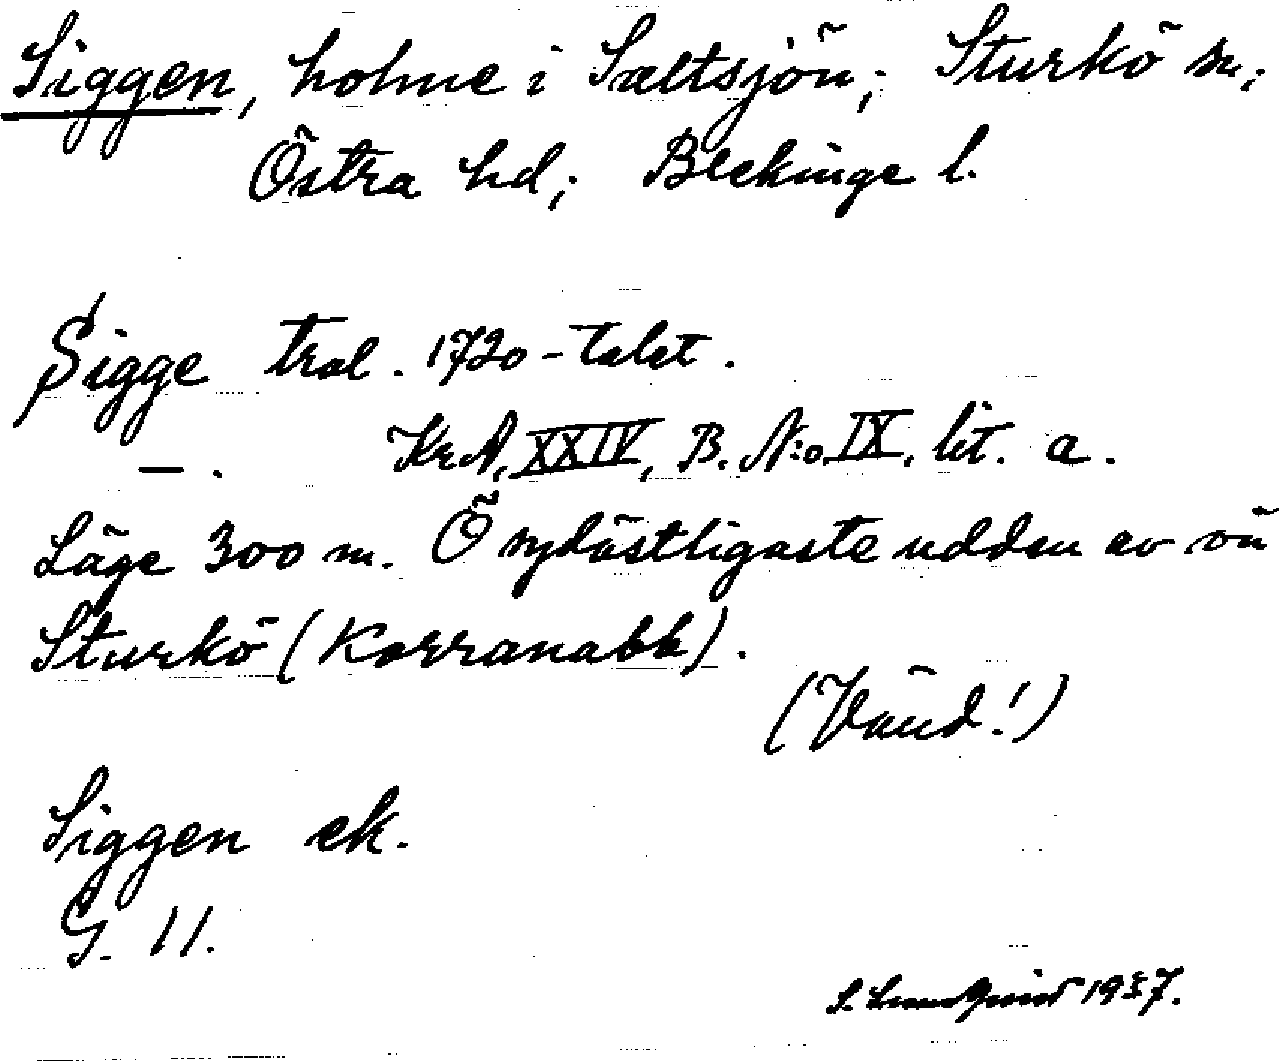 Siggen, holme i Saltsjön; Sturkö sn;
Östra hd; Blekinge l.
Sigge tral. 1720-talet.
— . KrA, XXIV, B. N:o IX. lit. a.
Läge 300 m. Ö sydöstligaste udden av ön
Sturkö (Karranabb).
(Vänd!)
Siggen ek.
G. 11.
1937.